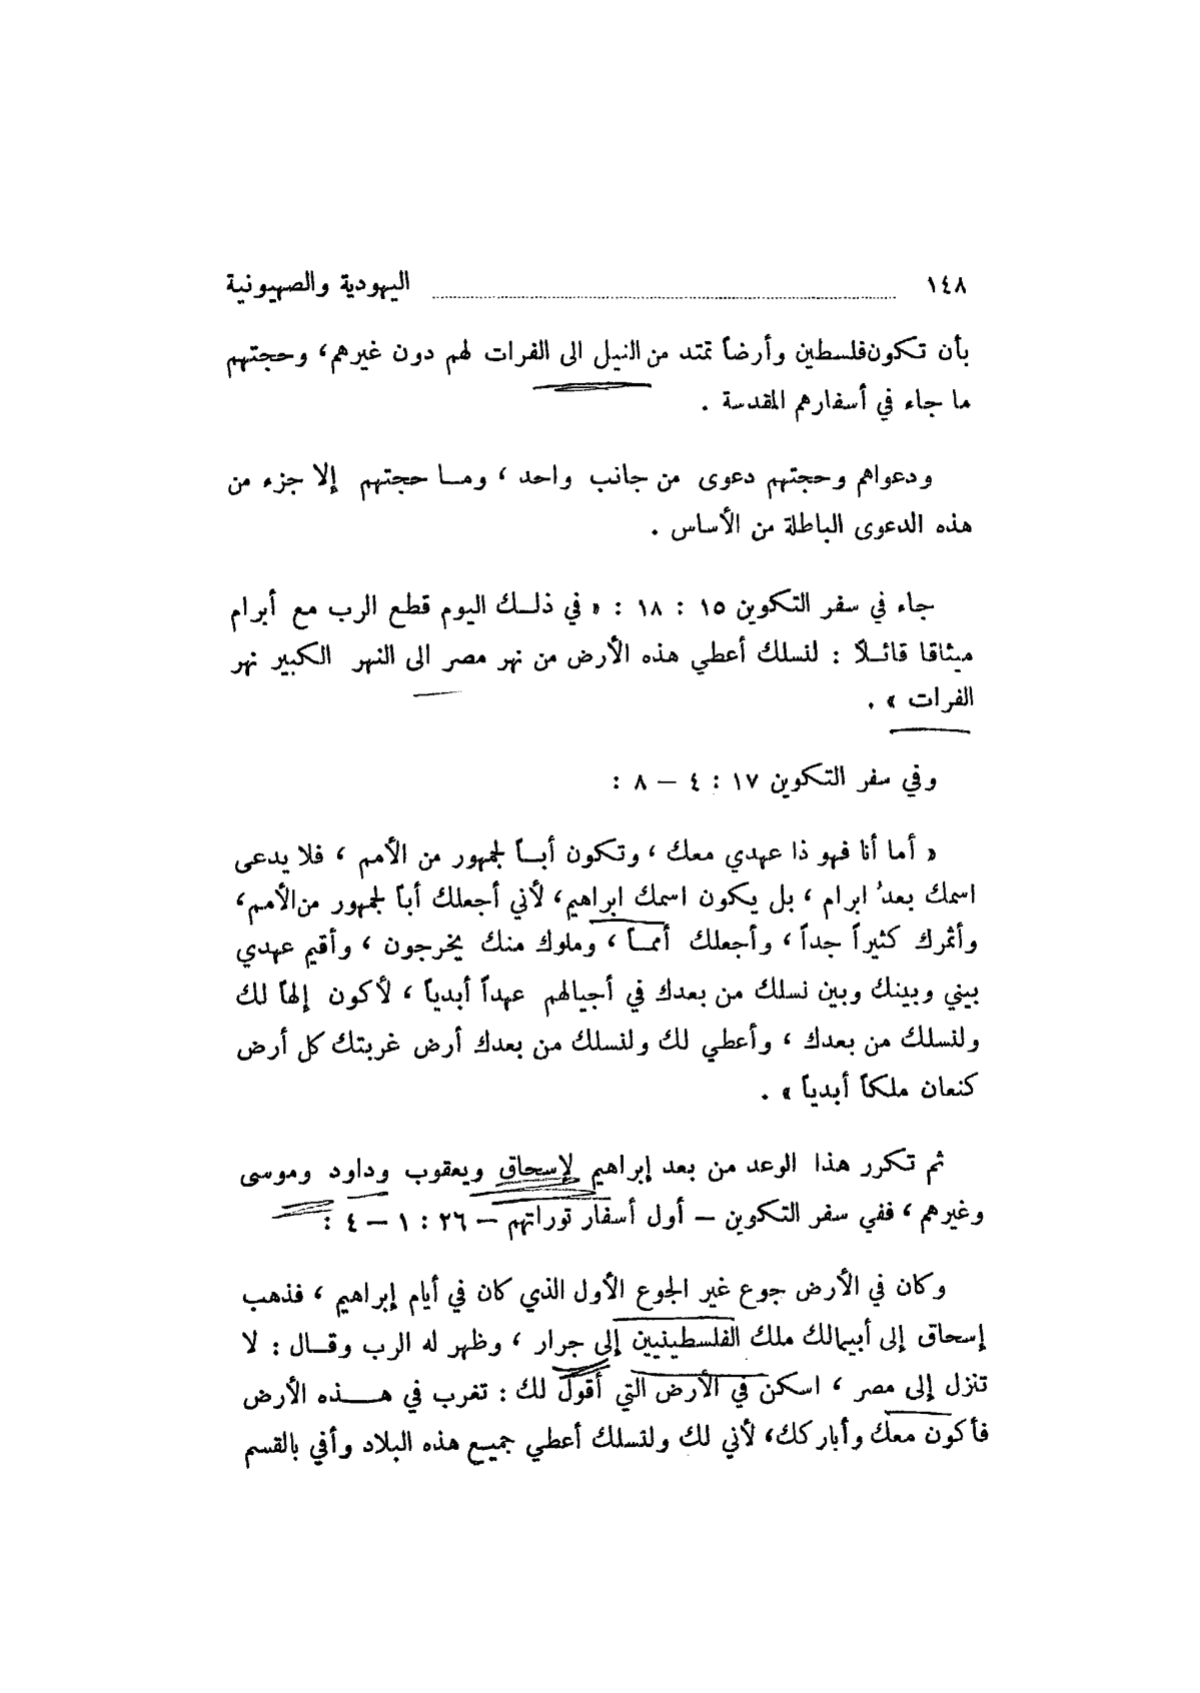 ١٤٨ ........ اليهودية والصهيونية
بأن تكون فلسطين وأرضاً تمتد من النيل الى الفرات لهم دون غيرهم، وحجتهم
ما جاء في أسفارهم المقدسة .
ودعواهم وحجتهم دعوى من جانب واحد ، ومـا حجتهم إلا جزء من
هذه الدعوى الباطلة من الأساس .
جاء في سفر التكوين ١٥ : ١٨ : « في ذلـك اليوم قطع الرب مع أبرام
ميثاقا قائـلاً : لنسلك أعطي هذه الأرض من نهر مصر الى النهر الكبير نهر
الفرات » .
وفي سفر التكوين ١٧ : ٤ – ٨ :
« أما أنا فهو ذا عهدي معك ، وتكون أبـاً لجمهور من الأمم ، فلا يدعى
اسمك بعدُ ابرام ، بل يكون اسمك ابراهيم، لأني أجعلك أباً لجمهور من الأمم،
وأثمرك كثيراً جداً ، وأجعلك أممـاً ، وملوك منك يخرجون ، وأقيم عهدي
بيني وبينك وبين نسلك من بعدك في أجيالهم عهداً أبدياً ، لأكون إلهاً لك
ولنسلك من بعدك ، وأعطي لك ولنسلك من بعدك أرض غربتك كل أرض
كنعان ملكاً أبدياً » .
ثم تكرر هذا الوعد من بعد إبراهيم لإسحاق ويعقوب وداود وموسى
وغيرهم ، ففي سفر التكوين – أول أسفار توراتهم – ٢٦ : ١ – ٤ :
وكان في الأرض جوع غير الجوع الأول الذي كان في أيام إبراهيم ، فذهب
إسحاق إلى أبيمالك ملك الفلسطينيين إلى جرار ، وظهر له الرب وقـال : لا
تنزل إلى مصر ، اسكن في الأرض التي أقول لك : تغرب في هـــذه الأرض
فأكون معك وأباركك، لأني لك ولنسلك أعطي جميع هذه البلاد وأفي بالقسم